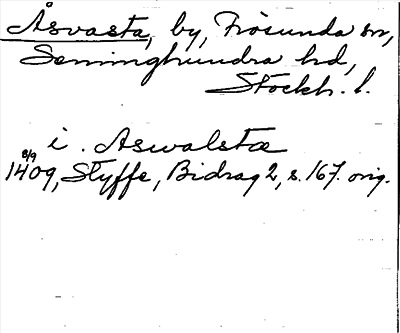 Åsvasta, by, Frösunda sn,
Seminghundra hd,
Stockh. l.
i. Aswalstæ
8/9 1409, Styffe, Bidrag 2, s. 167. orig.